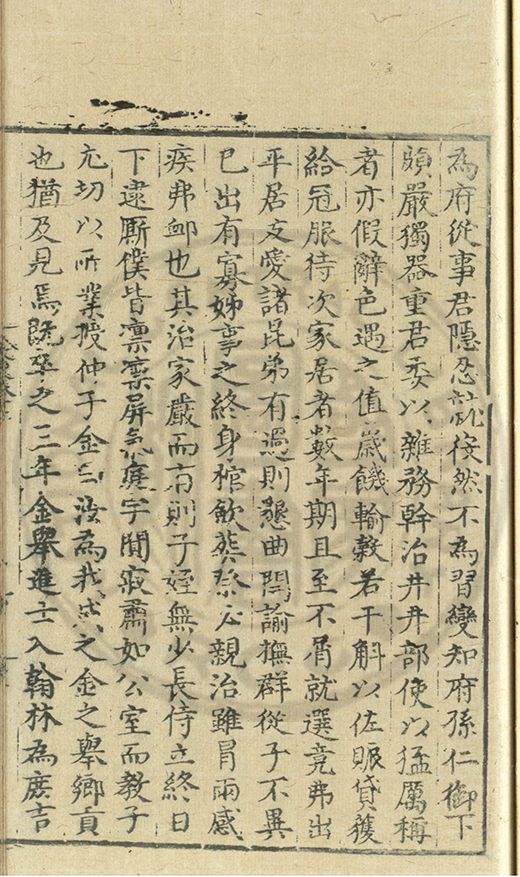 為府從事君隱忍就役然不為習變知府孫仁御下
頗嚴獨器重君委以雜務幹治井井部使以猛厲稱
者亦假辭色遇之值歲饑輸穀若干斛以佐賑貸獲
給冠服待次家居者數年期且至不屑就選竟弗出
平居友愛諸昆弟有過則懇曲開諭撫群從子不異
已出有寡姊事之終身棺飲葬祭必親治雖冒雨感
疾弗卹也其治家嚴而有則子姪無少長侍立終日
下逮厮僕皆凛凛屏氣庭宇閴寂肅如公室而教子
尤切以所業授仲子金曰汝為我成之金之舉鄉貢
也猶及見焉既卒之三年金舉進士入翰林為庶吉